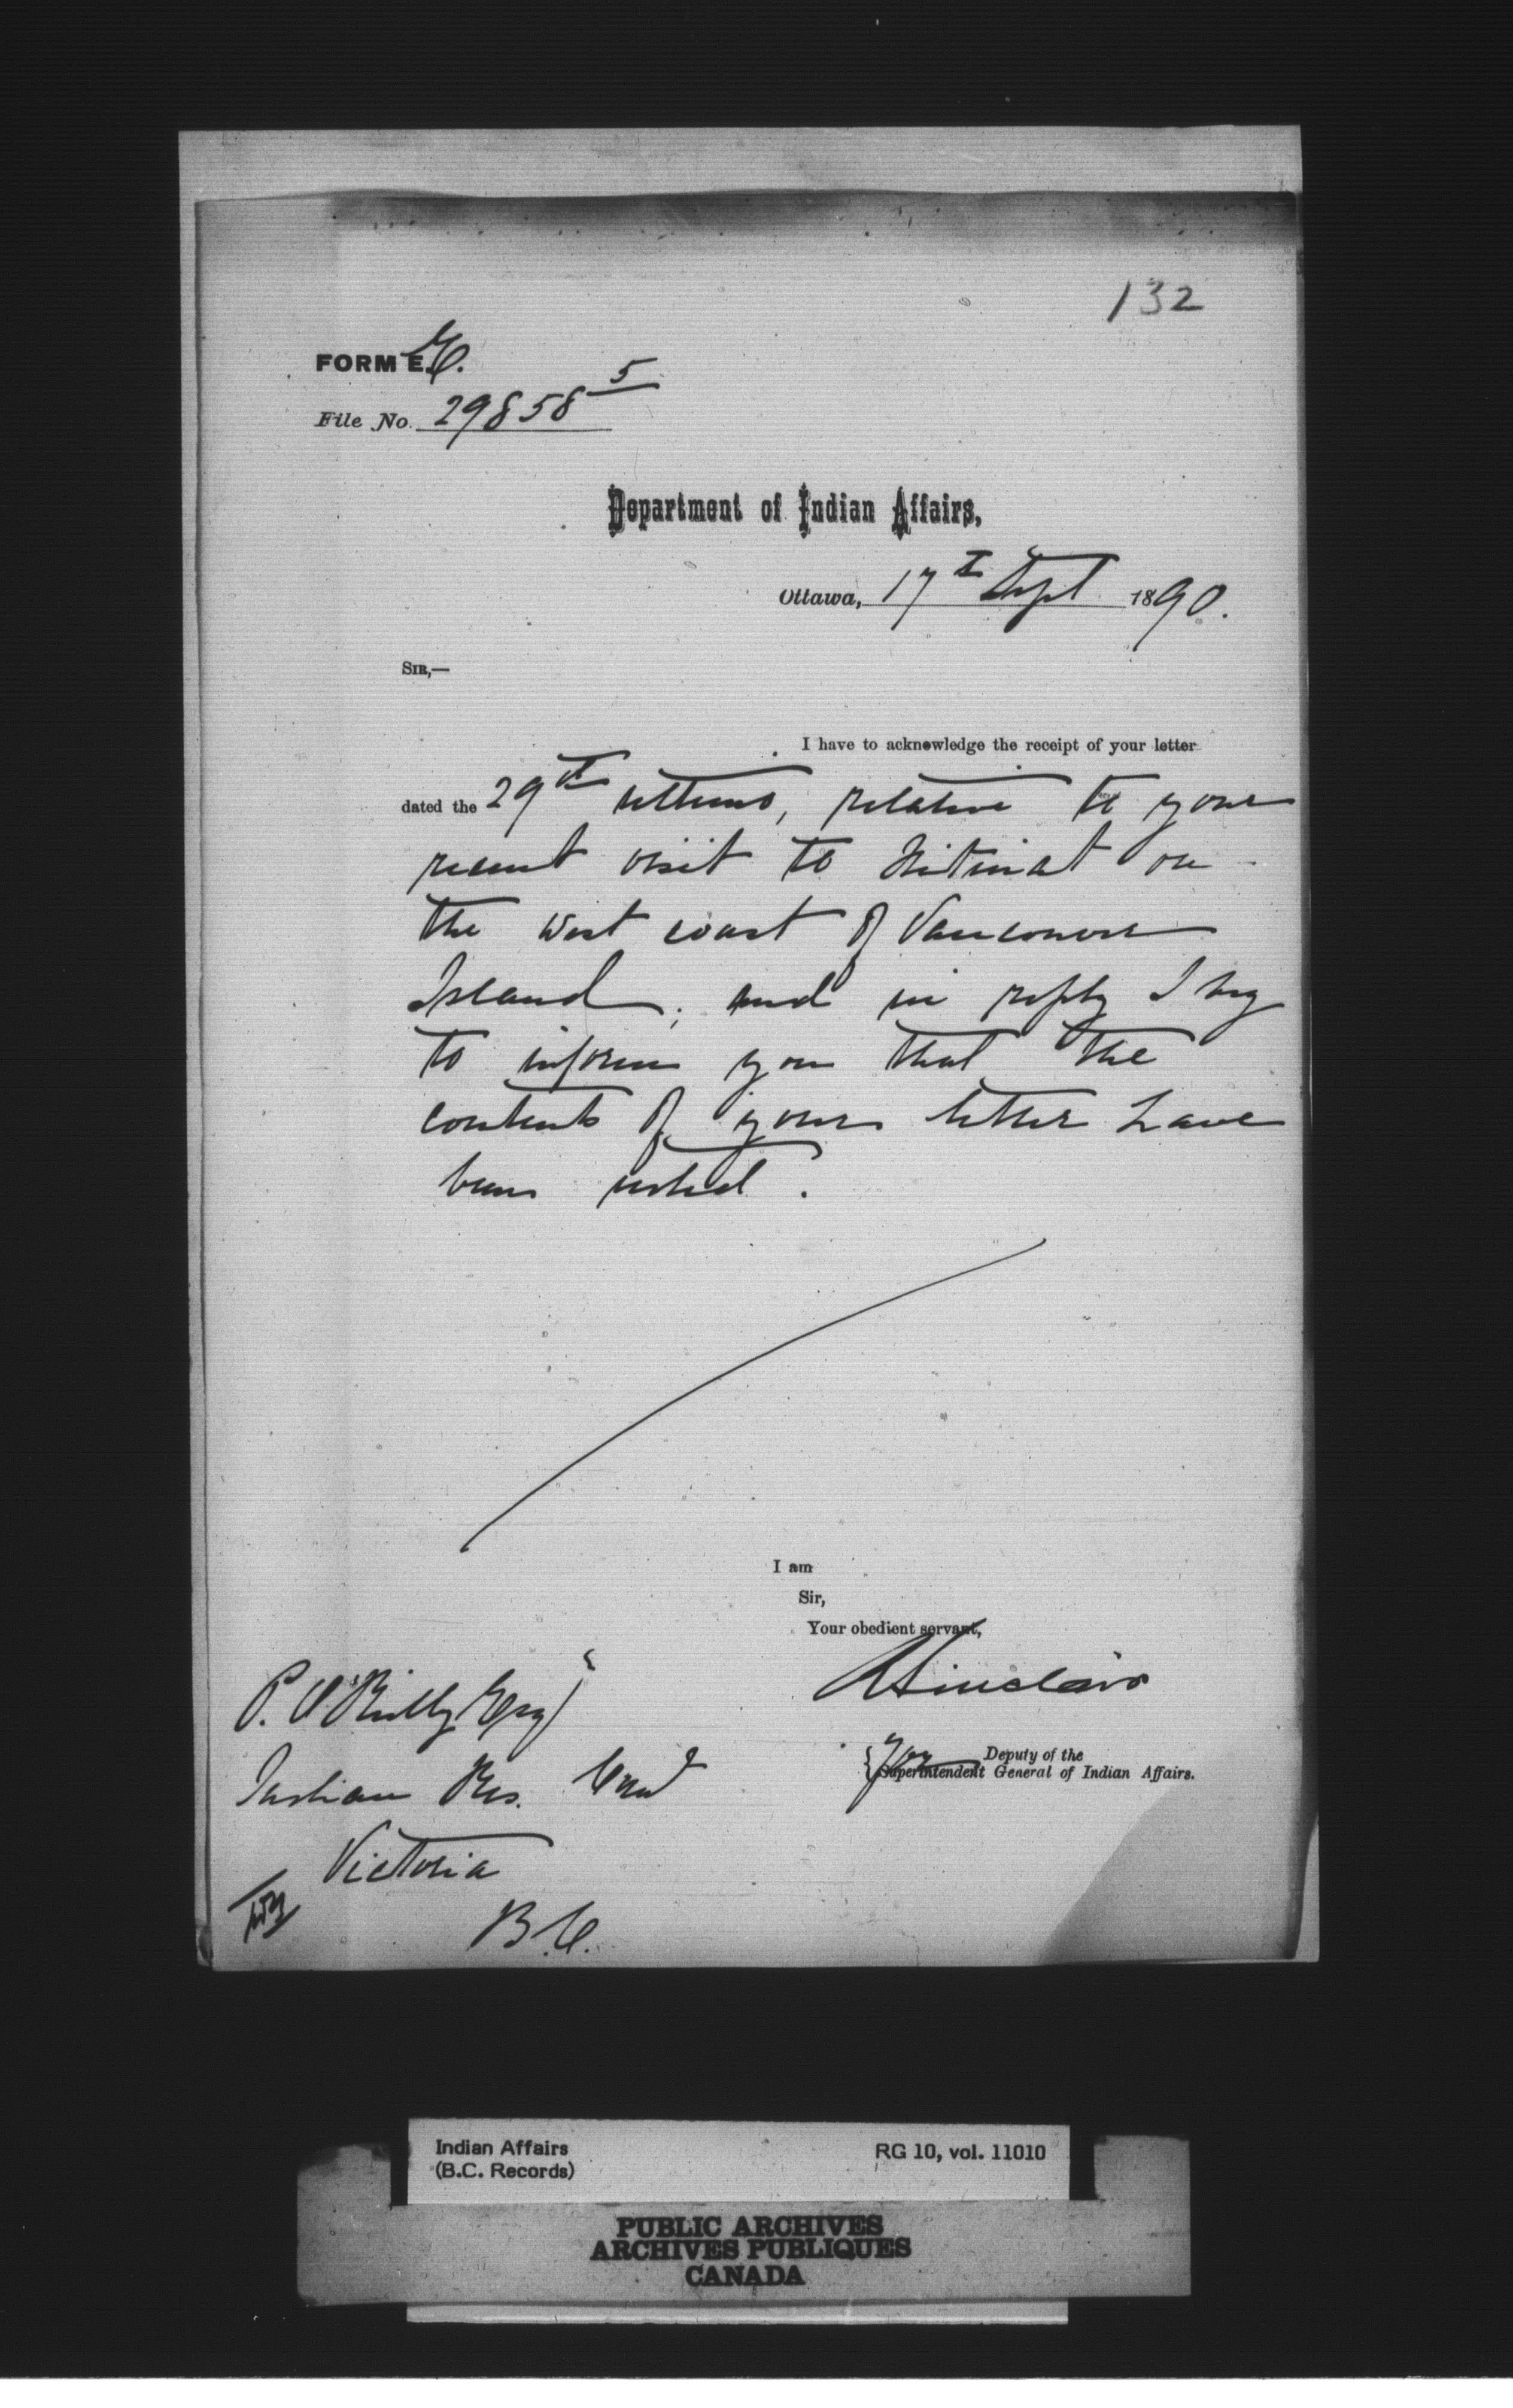 132
FORM E.
File No. 29858 5
Department of Indian Affairs,
Ottawa, 17th Sept 1890.
SIR,—
I have to acknowledge the receipt of your letter
dated the 29th ultimo, relative to your
recent visit to Nitinat on
the west coast of Vancouver
Island; and in reply I beg
to inform you that the
contents of your letter have
been noted.
I am
Sir,
Your obedient servant,
R Sinclair
For Deputy of the
Superintendent General of Indian Affairs.
P. O'Reilly Esq
Indian Res. Comr
Victoria
B.C.
Indian Affairs
(B.C. Records)
RG 10, vol. 11010
PUBLIC ARCHIVES
ARCHIVES PUBLIQUES
CANADA